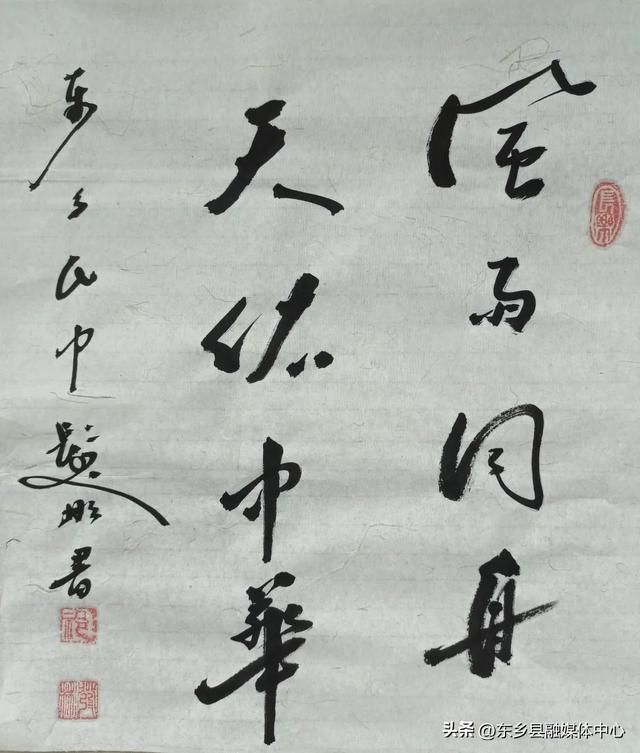 风雨同舟
天佑中華
东乡民中
书
头条 @东乡县融媒体中心